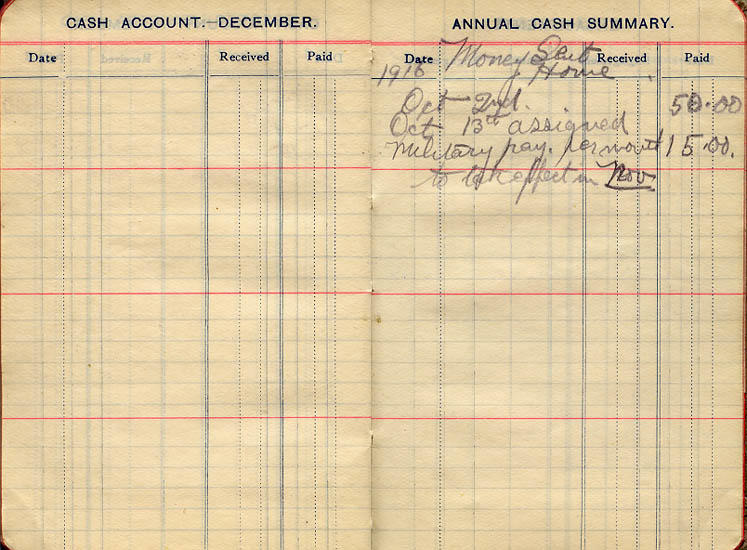 CASH ACCOUNT.—DECEMBER.
Date Received Paid
ANNUAL CASH SUMMARY.
Date Received Paid
1916 Money Sent
Home
Oct 2nd. 50.00
Oct 13th assigned
Military pay. per month 15.00.
to take effect in Nov